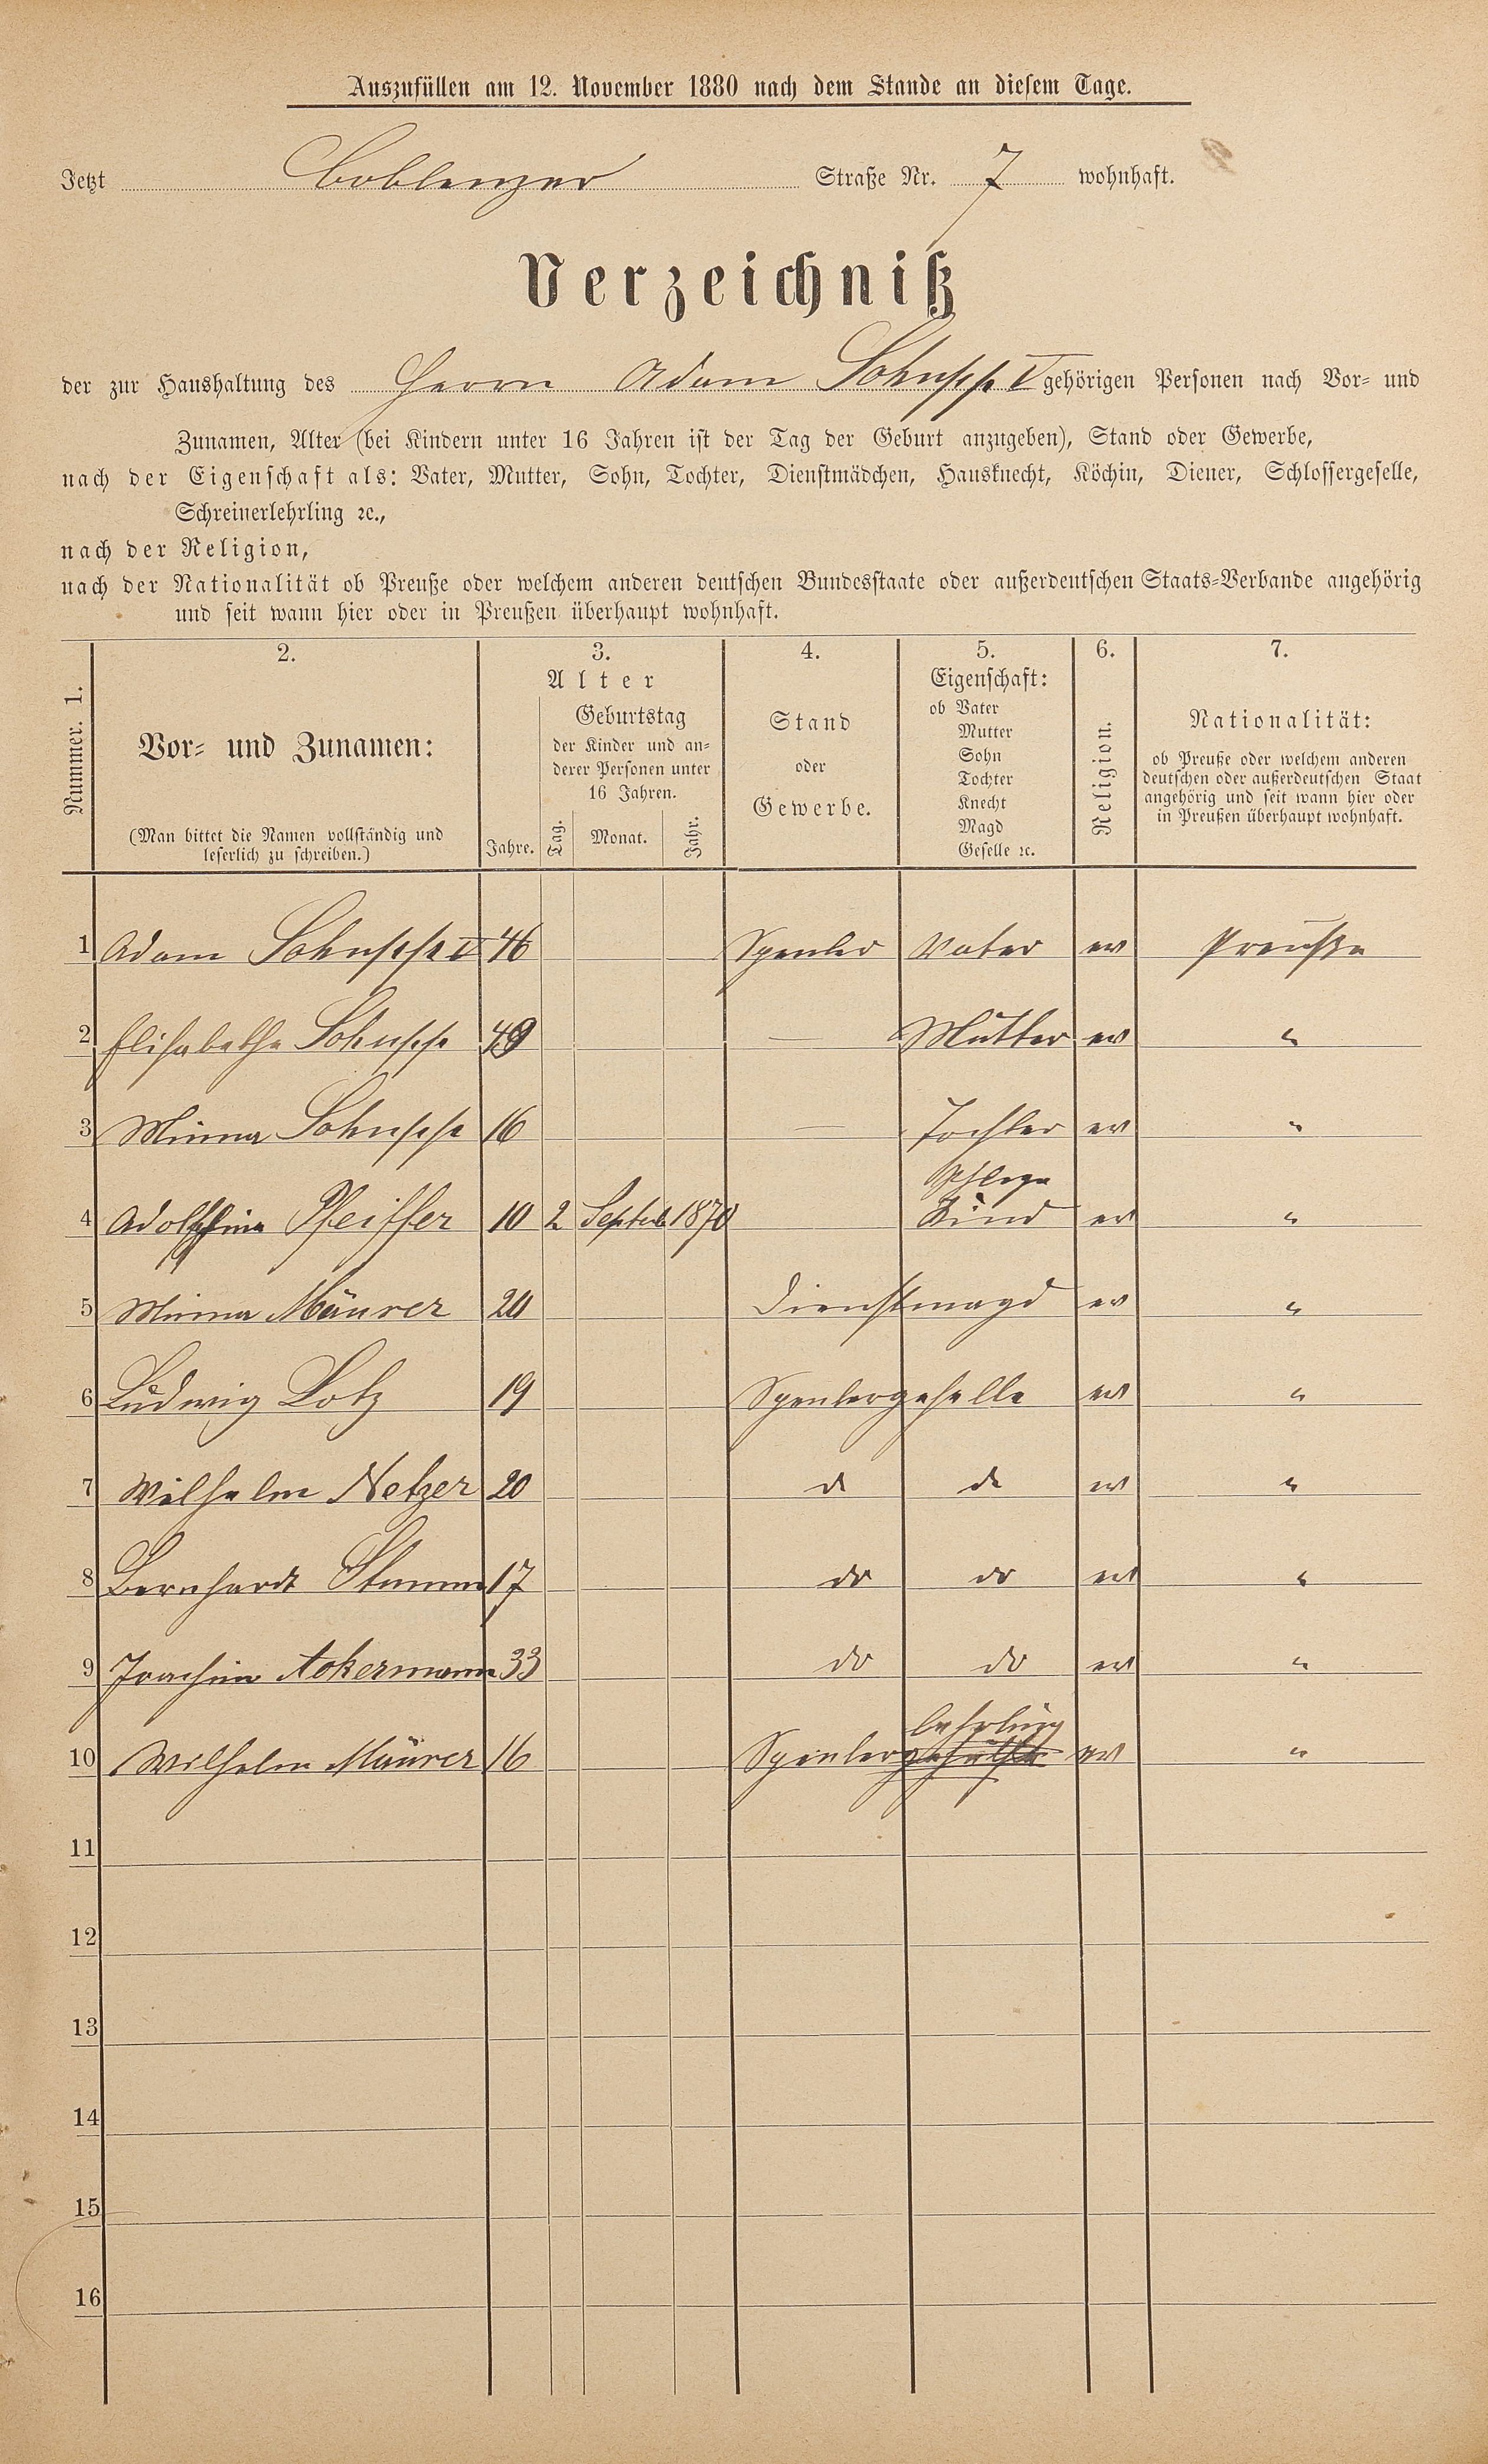 Auszufüllen am 12. November 1880 nach dem Stande an diesem Tage.
Jetzt Coblenzer Straße Nr. 7 wohnhaft.
Verzeichniß
der zur Haushaltung des Herrn Adam Schupp V gehörigen Personen nach Vor- und
Zunamen, Alter (bei Kindern unter 16 Jahren ist der Tag der Geburt anzugeben), Stand oder Gewerbe,
nach der Eigenschaft als: Vater, Mutter, Sohn, Tochter, Dienstmädchen, Hausknecht, Köchin, Diener, Schlossergeselle,
Schreinerlehrling ꝛc.,
nach der Religion,
nach der Nationalität ob Preuße oder welchem anderen deutschen Bundesstaate oder außerdeutschen Staats-Verbande angehörig
und seit wann hier oder in Preußen überhaupt wohnhaft.
Nummer. 1.
2.
Vor- und Zunamen:
(Man bittet die Namen vollständig und
leserlich zu schreiben.)
3.
Alter
Jahre.
Geburtstag
der Kinder und an-
derer Personen unter
16 Jahren.
Tag. Monat. Jahr.
4.
Stand
oder
Gewerbe.
5.
Eigenschaft:
ob Vater
Mutter
Sohn
Tochter
Knecht
Magd
Geselle ꝛc.
6.
Religion.
7.
Nationalität:
ob Preuße oder welchem anderen
deutschen oder außerdeutschen Staat
angehörig und seit wann hier oder
in Preußen überhaupt wohnhaft.
1 Adam Schupp V 46 Spenler Vater ev Preuße
2 Elisabethe Schupp — Mutter ev "
3 Minna Schupp 16 — Tochter ev "
Pflege
4 Adolphine Pfeiffer 10 2 Septeb 1870 Kind ev "
5 Minna Mäurer 20 Dienstmagd ev "
6 Ludwig Lotz 19 Spenlergeselle ev "
7 Wilhelm Netzer 20 do do ev "
8 Bernhardt Stamm 17 do do ev "
9 Joachim Ackermann 33 do do ev "
lehrling
10 Wilhelm Mäurer 16 Spenler ev "
11
12
13
14
15
16